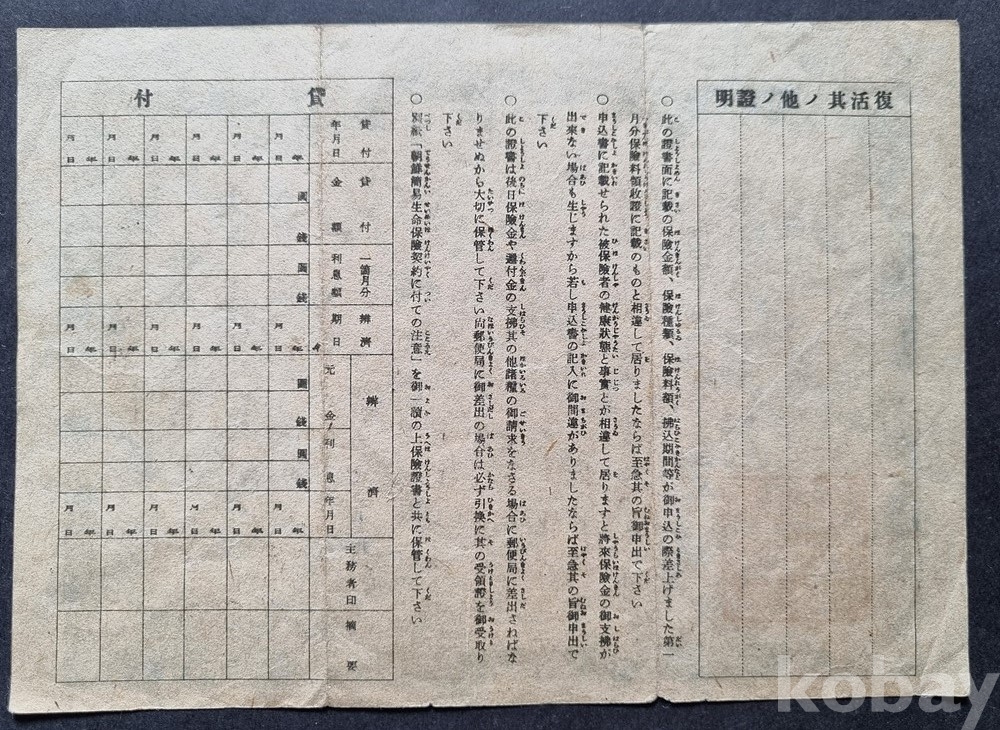 復活其ノ他ノ證明
○此の證書面に記載の保險金額、保險種類、保險料額、拂込期間等が御申込の際差上げました第一
月分保險料領收證に記載のものと相違して居りましたならば至急其の旨御申出で下さい
○申込書に記載せられた被保險者の健康狀態と事實とが相違して居りますと將來保險金の御支拂が
出來ない場合も生じますから若し申込書の記入に御間違がありましたならば至急其の旨御申出で
下さい
○此の證書は後日保險金や還付金の支拂其の他諸種の御請求をなさる場合に郵便局に差出さねばな
りませぬから大切に保管して下さい尙郵便局に御差出の場合は必ず引換に其の受領證を御受取り
下さい
○別紙「朝鮮簡易生命保險契約に付ての注意」を御一讀の上保險證書と共に保管して下さい
貸付
貸付年月日
貸付金額
一箇月分利息額
辨濟期日
辨濟
元金
利息
年月日
主務者印
摘要
年月日 年月日 年月日 年月日 年月日 年月日
圓
錢
圓
錢
年月日 年月日 年月日 年月日 年月日 年月日
圓
錢
圓
錢
年月日 年月日 年月日 年月日 年月日 年月日
kobay